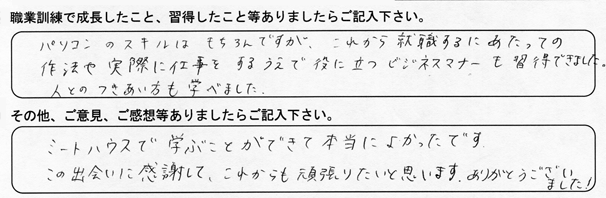 職業訓練で成長したこと、習得したこと等ありましたらご記入下さい。
パソコンのスキルはもちろんですが、これから就職するにあたっての
作法や実際に仕事をするうえで役に立つビジネスマナーも習得できました。
人とのつきあい方も学べました.
その他、ご意見、ご感想等ありましたらご記入下さい。
ミートハウスで学ぶことができて本当によかったです.
この出会いに感謝して、これからも頑張りたいと思います.ありがとうござい
ました!